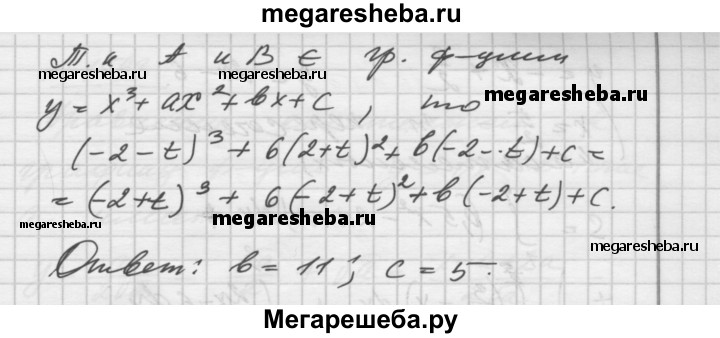 megaresheba.ru
Т. к A и B ∈ гр. ф-ции
megaresheba.ru megaresheba.ru
y = x³ + ax² + bx + c, то
megaresheba.ru
(-2-t)³ + 6(2+t)² + b(-2-t) + c =
= (-2+t)³ + 6(-2+t)² + b(-2+t) + c.
megaresheba.ru megaresheba.ru
megaresheba.ru
Ответ: b = 11; c = 5.
Мегарешеба.ру